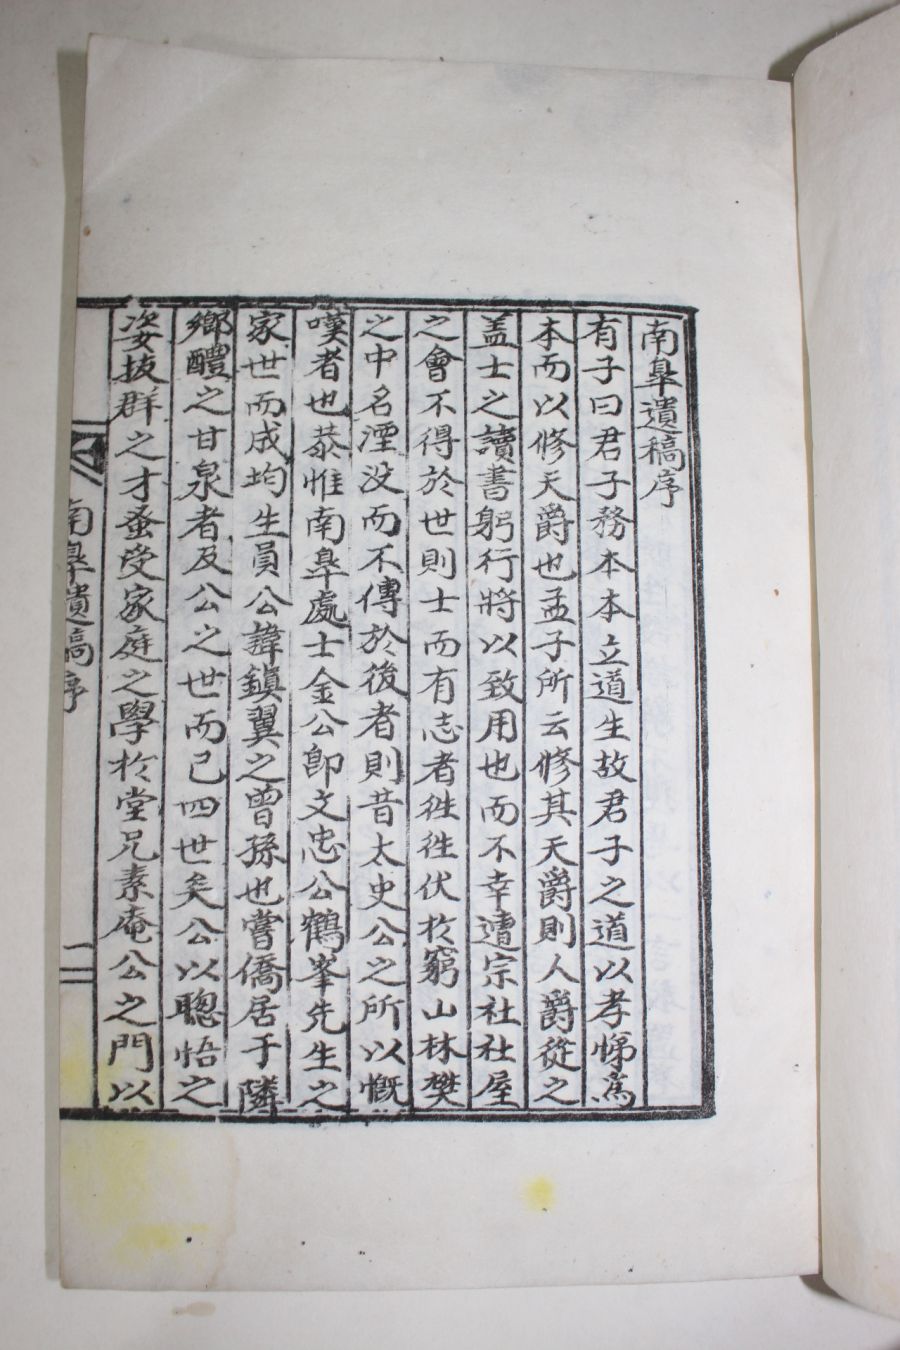 南皐遺稿序
有子曰君子務本本立道生故君子之道以孝悌爲
本而以修天爵也孟子所云修其天爵則人爵從之
盖士之讀書躬行將以致用也而不幸遭宗社社屋
之會不得於世則士而有志者徃徃伏於窮山林樊
之中名湮没而不傳於後者則昔太史公之所以慨
嘆者也恭惟南皐處士金公卽文忠公鶴峯先生之
家世而成均生員公諱鎭翼之曾孫也嘗僑居于隣
鄉醴之甘泉者及公之世而已四世矣公以聰悟之
姿拔群之才蚤受家庭之學於堂兄素庵公之門以
南皐遺稿序
一